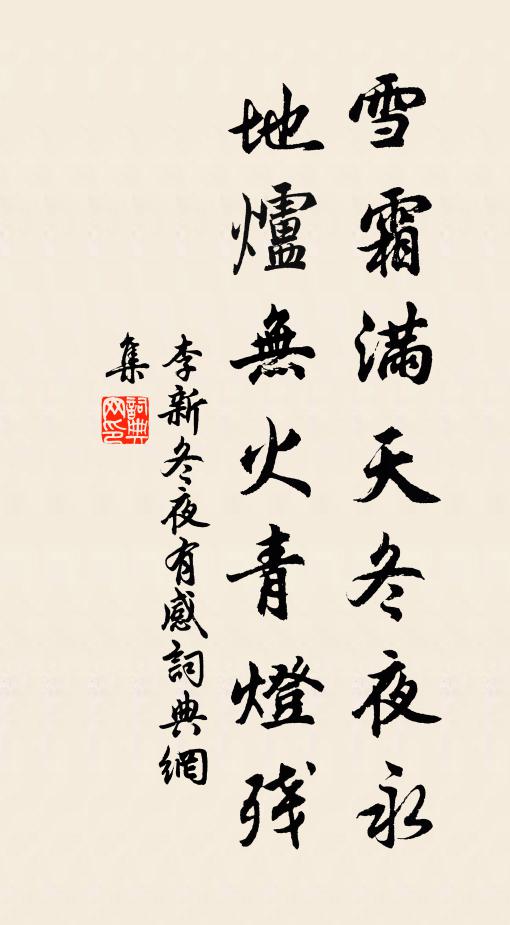 雪霜滿天冬夜永
地爐無火青燈残
李新冬夜有感詞典網
集
詞典
网印